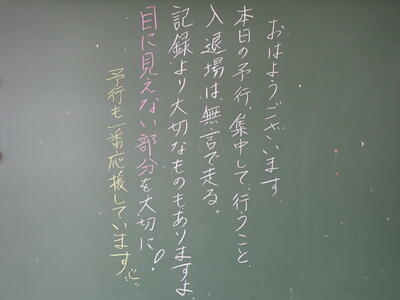 おはようございます
本日の予行、集中して行うこと
入退場は無言で走る。
記録より大切なものもありますよ
目に見えない部分を大切に!
予行も一番応援しています